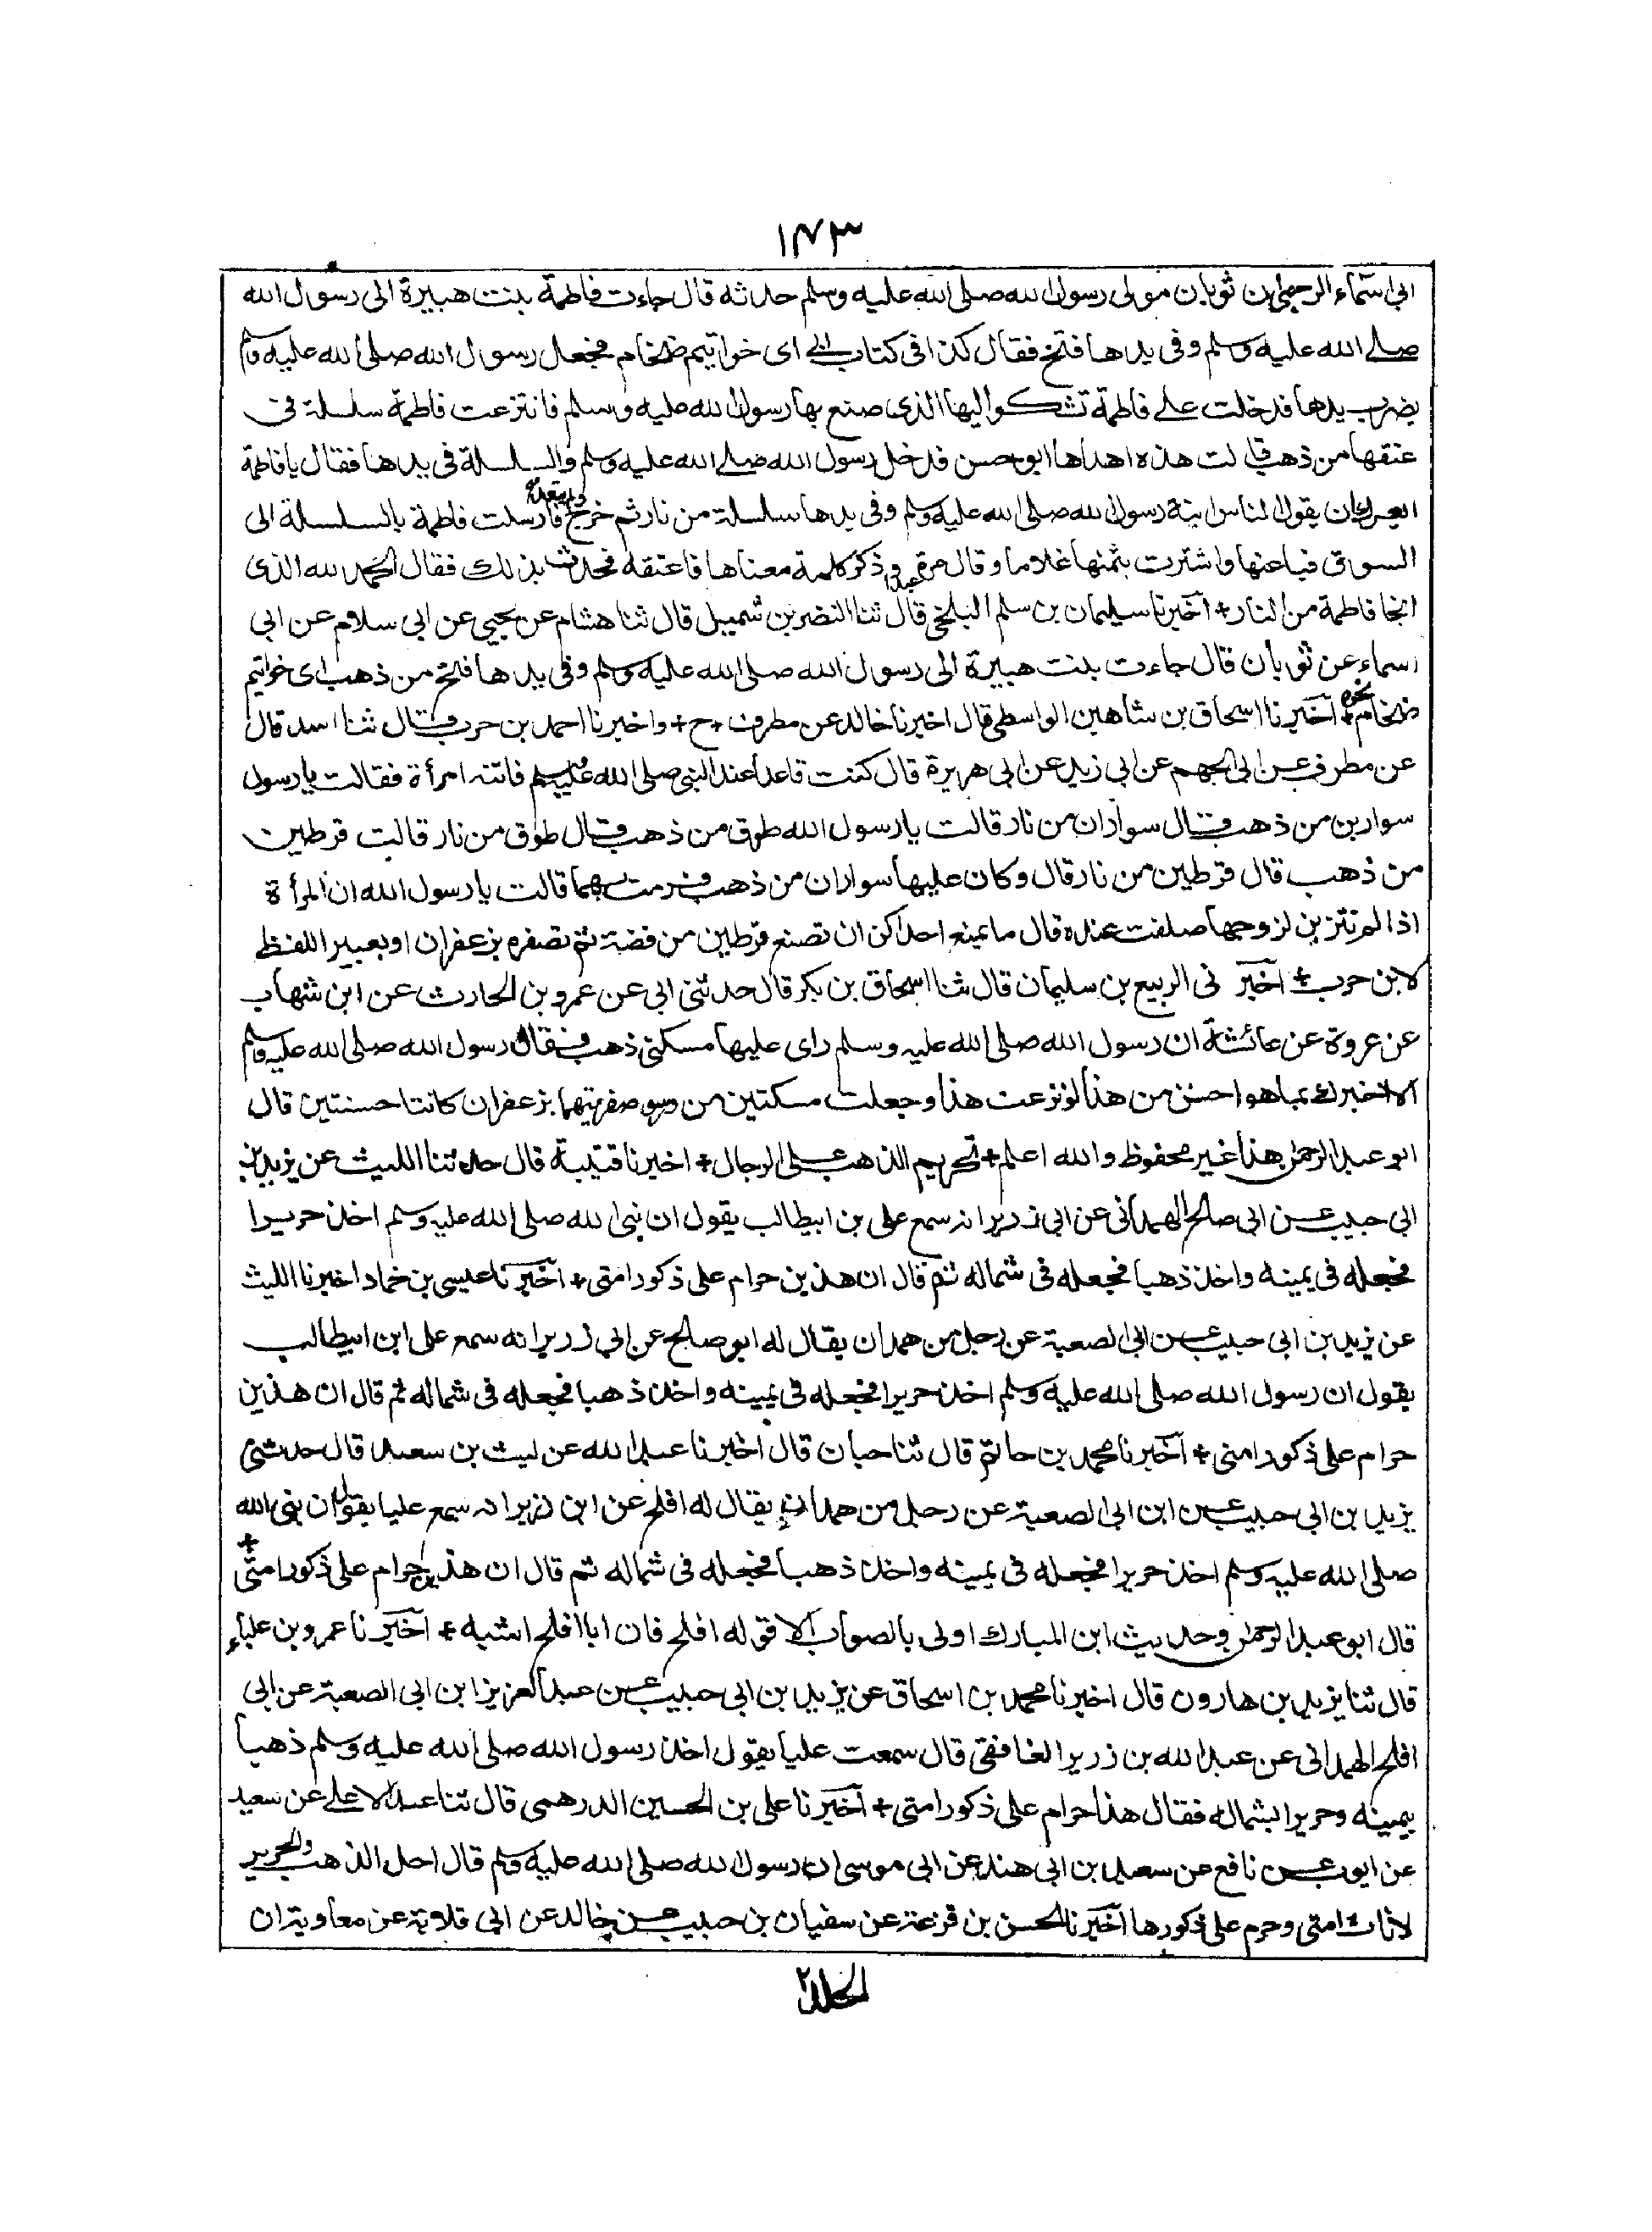 ١٧٣
ابى اسماء الرحبى ان ثوبان مولى رسول الله صلى الله عليه وسلم حدثه قال جاءت فاطمة بنت هبيرة الى رسول الله
صلى الله عليه وسلم وفى يدها فتخ فقال كذا فى كتاب ابى اى خواتيم ضخام فجعل رسول الله صلى الله عليه وسلم
يضرب يدها فدخلت على فاطمة تشكوا اليها الذى صنع بها رسول الله صلى الله عليه وسلم فانتزعت فاطمة سلسلة فى
عنقها من ذهب قالت هذه اهداها ابو حسن فدخل رسول الله صلى الله عليه وسلم والسلسلة فى يدها فقال يا فاطمة
ايغرك ان يقول الناس ابنة رسول الله صلى الله عليه وسلم وفى يدها سلسلة من نار ثم خرج ولم يقعد فارسلت فاطمة بالسلسلة الى
السوق فباعتها واشترت بثمنها غلاما وقال مرة عبدا وذكر كلمة معناها فاعتقه فحدث بذلك فقال الحمد لله الذى
انجا فاطمة من النار + اخبرنا سليمان بن سلم البلخى قال ثنا النضر بن شميل قال ثنا هشام عن يحيى عن ابى سلام عن ابى
اسماء عن ثوبان قال جاءت بنت هبيرة الى رسول الله صلى الله عليه وسلم وفى يدها فتخ من ذهب اى خواتيم
ضخام نحوه + اخبرنا اسحاق بن شاهين الواسطى قال اخبرنا خالد عن مطرف + ح + واخبرنا احمد بن حرب قال ثنا اسد قال
عن مطرف عن ابى الجهم عن ابى زيد عن ابى هريرة قال كنت قاعدا عند النبى صلى الله عليه وسلم فاتته امرأة فقالت يا رسول
سوارين من ذهب قال سواران من نار قالت يا رسول الله طوق من ذهب قال طوق من نار قالت قرطين
من ذهب قال قرطين من نار قال وكان عليها سواران من ذهب فرمت بهما قالت يا رسول الله ان المرأة
اذا لم تتزين لزوجها صلفت عنده قال ما يمنع احداكن ان تصنع قرطين من فضة ثم تصفره بزعفران او بعبير اللفظ
لابن حرب + اخبرنى الربيع بن سليمان قال ثنا اسحاق بن بكر قال حدثنى ابى عن عمرو بن الحارث عن ابن شهاب
عن عروة عن عائشة ان رسول الله صلى الله عليه وسلم راى عليها مسكتى ذهب فقال رسول الله صلى الله عليه وسلم
الا اخبرك بما هو احسن من هذا لو نزعت هذا وجعلت مسكتين من ثم صفرتهما بزعفران كانتا حسنتين قال
ابو عبد الرحمن هذا غير محفوظ والله اعلم + تحريم الذهب على الرجال + اخبرنا قتيبة قال حدثنا الليث عن يزيد بن
ابى حبيب عن ابى صالح الهمدانى عن ابى زرير انه سمع على بن ابيطالب يقول ان نبى الله صلى الله عليه وسلم اخذ حريرا
فجعله فى يمينه واخذ ذهبا فجعله فى شماله ثم قال ان هذين حرام على ذكور امتى + اخبرنا عيسى بن حماد اخبرنا الليث
عن يزيد بن ابى حبيب عن ابى الصعبة عن رجل من همدان يقال له ابو صالح عن ابى زرير انه سمع على ابن ابيطالب
يقول ان رسول الله صلى الله عليه وسلم اخذ حريرا فجعله فى يمينه واخذ ذهبا فجعله فى شماله ثم قال ان هذين
حرام على ذكور امتى + اخبرنا محمد بن حاتم قال ثنا حبان قال اخبرنا عبد الله عن ليث بن سعد قال حدثنى
يزيد بن ابى حبيب عن ابن ابى الصعبة عن رجل من همدان يقال له افلح عن ابن زرير انه سمع عليا يقول ان نبى الله
صلى الله عليه وسلم اخذ حريرا فجعله فى يمينه واخذ ذهبا فجعله فى شماله ثم قال ان هذين حرام على ذكور امتى +
قال ابو عبد الرحمن وحديث ابن المبارك اولى بالصواب الا قوله افلح فان ابا افلح اشبه + اخبرنا عمرو بن على
قال ثنا يزيد بن هارون قال اخبرنا محمد بن اسحاق عن يزيد بن ابى حبيب عن عبد العزيز ابن ابى الصعبة عن ابى
افلح الهمدانى عن عبد الله بن زرير الغافقى قال سمعت عليا يقول اخذ رسول الله صلى الله عليه وسلم ذهبا
بيمينه وحريرا بشماله فقال هذا حرام على ذكور امتى + اخبرنا على بن الحسين الدرهمى قال ثنا عبد الاعلى عن سعيد
عن ايوب عن نافع عن سعيد بن ابى هند عن ابى موسى ان رسول الله صلى الله عليه وسلم قال احل الذهب والحرير
لاناث امتى وحرم على ذكورها اخبرنا الحسن بن قزعة عن سفيان بن حبيب عن خالد عن ابى قلابة عن معاوية ان
الجلد ٢